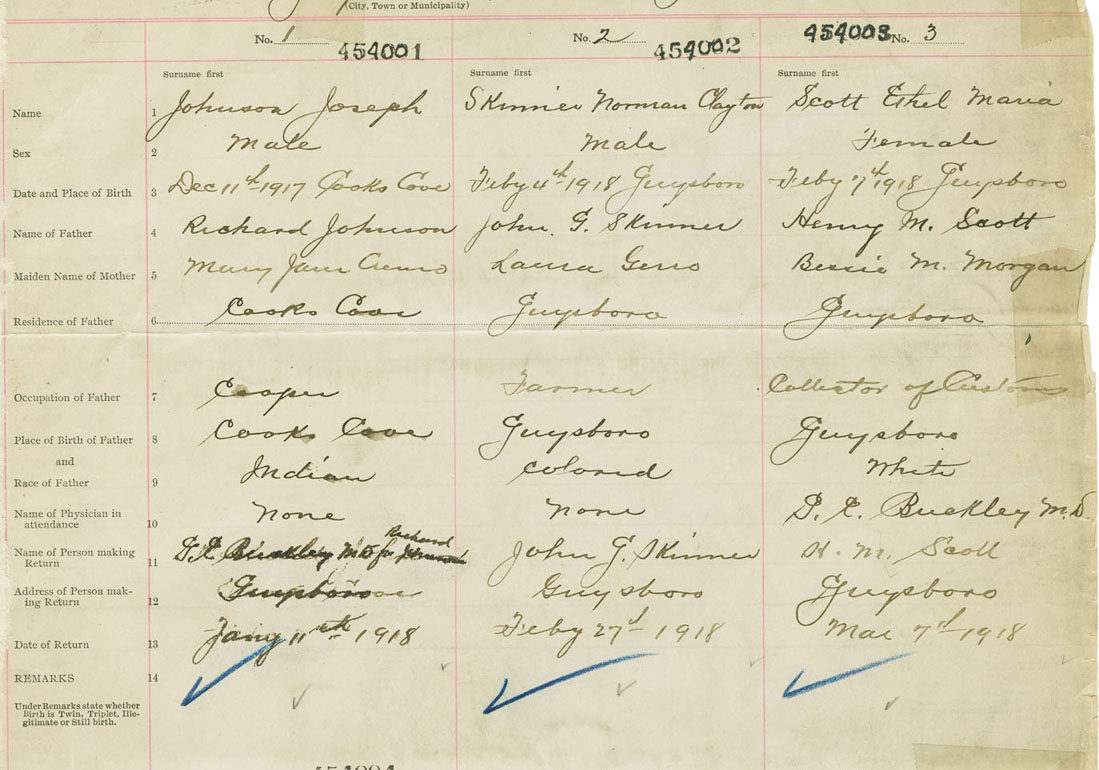 (City, Town or Municipality)
No. 1 454001 No. 2 454002 454003 No. 3
Surname first Surname first Surname first
Name 1 Johnson Joseph Skinner Norman Clayton Scott Ethel Maria
Sex 2 Male Male Female
Date and Place of Birth 3 Dec 11th 1917 Cooks Cove Feby 4th 1918 Guysboro Feby 7th 1918 Guysboro
Name of Father 4 Richard Johnson John G. Skinner Henry M. Scott
Maiden Name of Mother 5 Mary Jane Laura Gero Bessie M. Morgan
Residence of Father 6 Cooks Cove Guysboro Guysboro
Occupation of Father 7 Cooper Farmer Collector of Customs
Place of Birth of Father 8 Cooks Cove Guysboro Guysboro
and
Race of Father 9 Indian Colored White
Name of Physician in
attendance 10 None None G. E. Buckley M.D.
Richard
Name of Person making
Return 11 G.E. Buckley MD for Johnson John G. Skinner H. M. Scott
Address of Person mak-
ing Return 12 Guysboro Guysboro Guysboro
Date of Return 13 Jany 11th 1918 Feby 27th 1918 Mar 7th 1918
REMARKS 14
Under Remarks state whether
Birth is Twin, Triplet, Ille-
gitimate or Still birth.